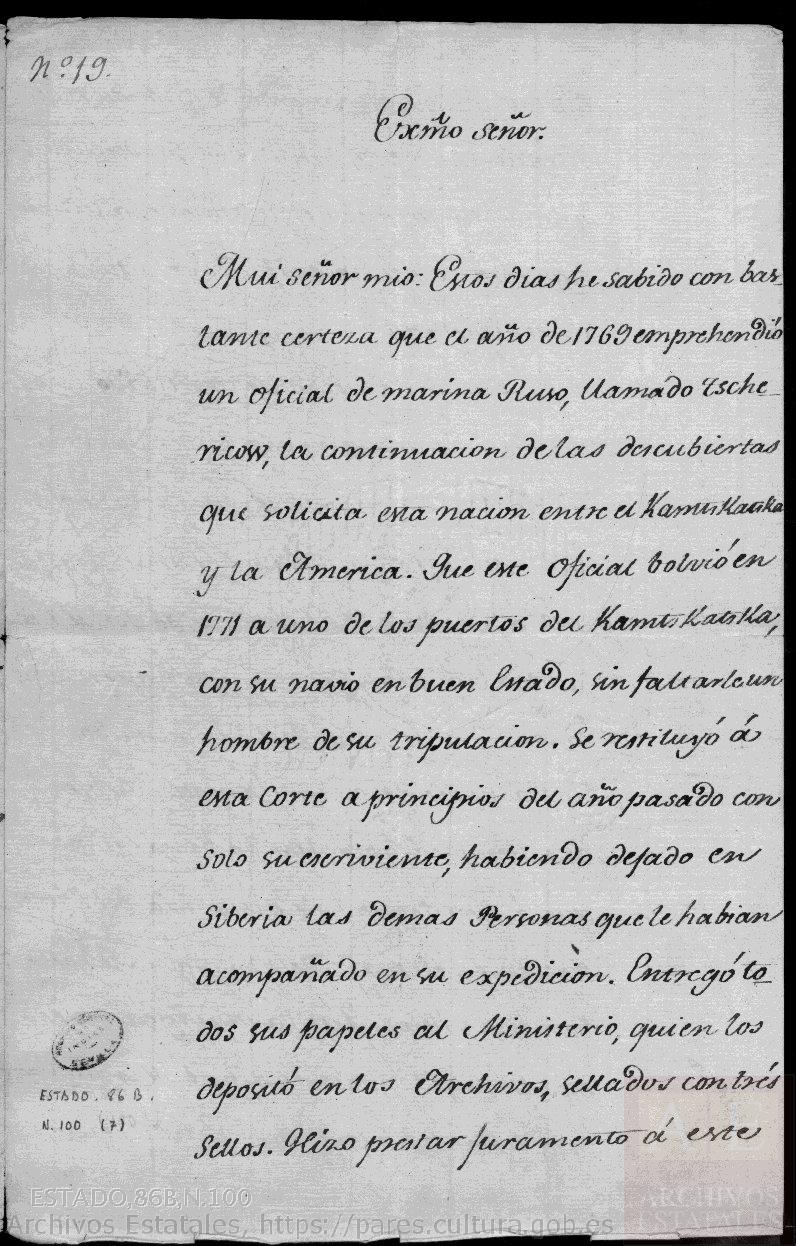 Nº 19.
Exmo señor.
Mui señor mio: Estos dias he sabido con bas-
tante certeza que el año de 1769 emprehendió
un Oficial de marina Ruso, llamado Tsche-
ricow, la continuacion de las descubiertas
que solicita esta nacion entre el Kamtskatska
y la America. Que este Oficial bolvió en
1771 a uno de los puertos del Kamtskatska,
con su navio en buen Estado, sin faltarle un
hombre de su tripulacion. Se restituyó á
esta Corte a principios del año pasado con
solo su escriviente, habiendo dejado en
Siberia las demas Personas que le habian
acompañado en su expedición. Entregó to-
dos sus papeles al Ministerio, quien los
depositó en los Archivos, sellados con trés
Sellos. Hizo prestar juramento á este
SEVILLA
ESTADO. 86 B.
N. 100 (7)
ESTADO,86B,N.100
Archivos Estatales, https://pares.cultura.gob.es
ARCHIVOS
ESTATALES